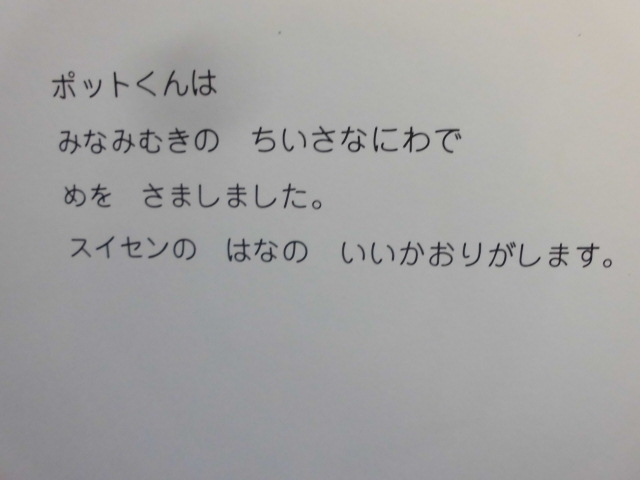 ポットくんは
みなみむきの　ちいさなにわで
めを　さましました。
スイセンの　はなの　いいかおりがします。